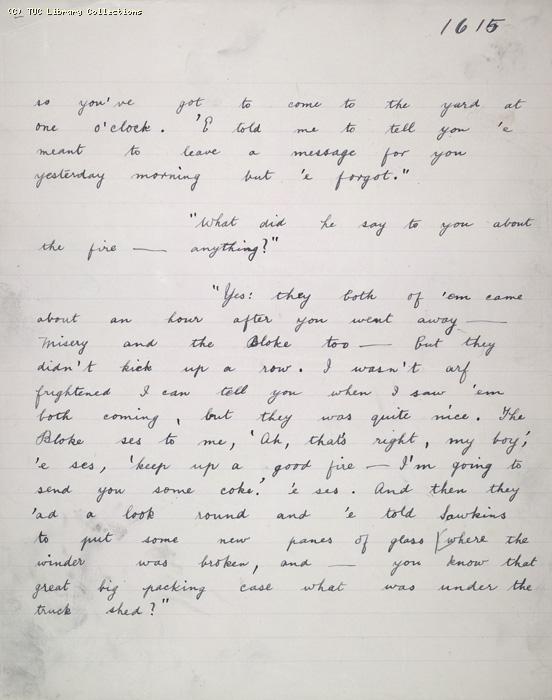 (C) TUC Library Collections
1615
so you've got to come to the yard at
one o'clock. 'E told me to tell you 'e
meant to leave a message for you
yesterday morning but 'e forgot."
"What did he say to you about
the fire — anything?"
"Yes: they both of 'em came
about an hour after you went away —
Misery and the Bloke too — but they
didn't kick up a row. I wasn't arf
frightened I can tell you when I saw 'em
both coming, but they was quite nice. The
Bloke ses to me, 'Ah, that's right, my boy,'
'e ses, 'keep up a good fire — I'm going to
send you some coke.' 'e ses. And then they
'ad a look round and 'e told Sawkins
to put some new panes of glass [where the
winder was broken, and — you know that
great big packing case what was under the
truck shed?"